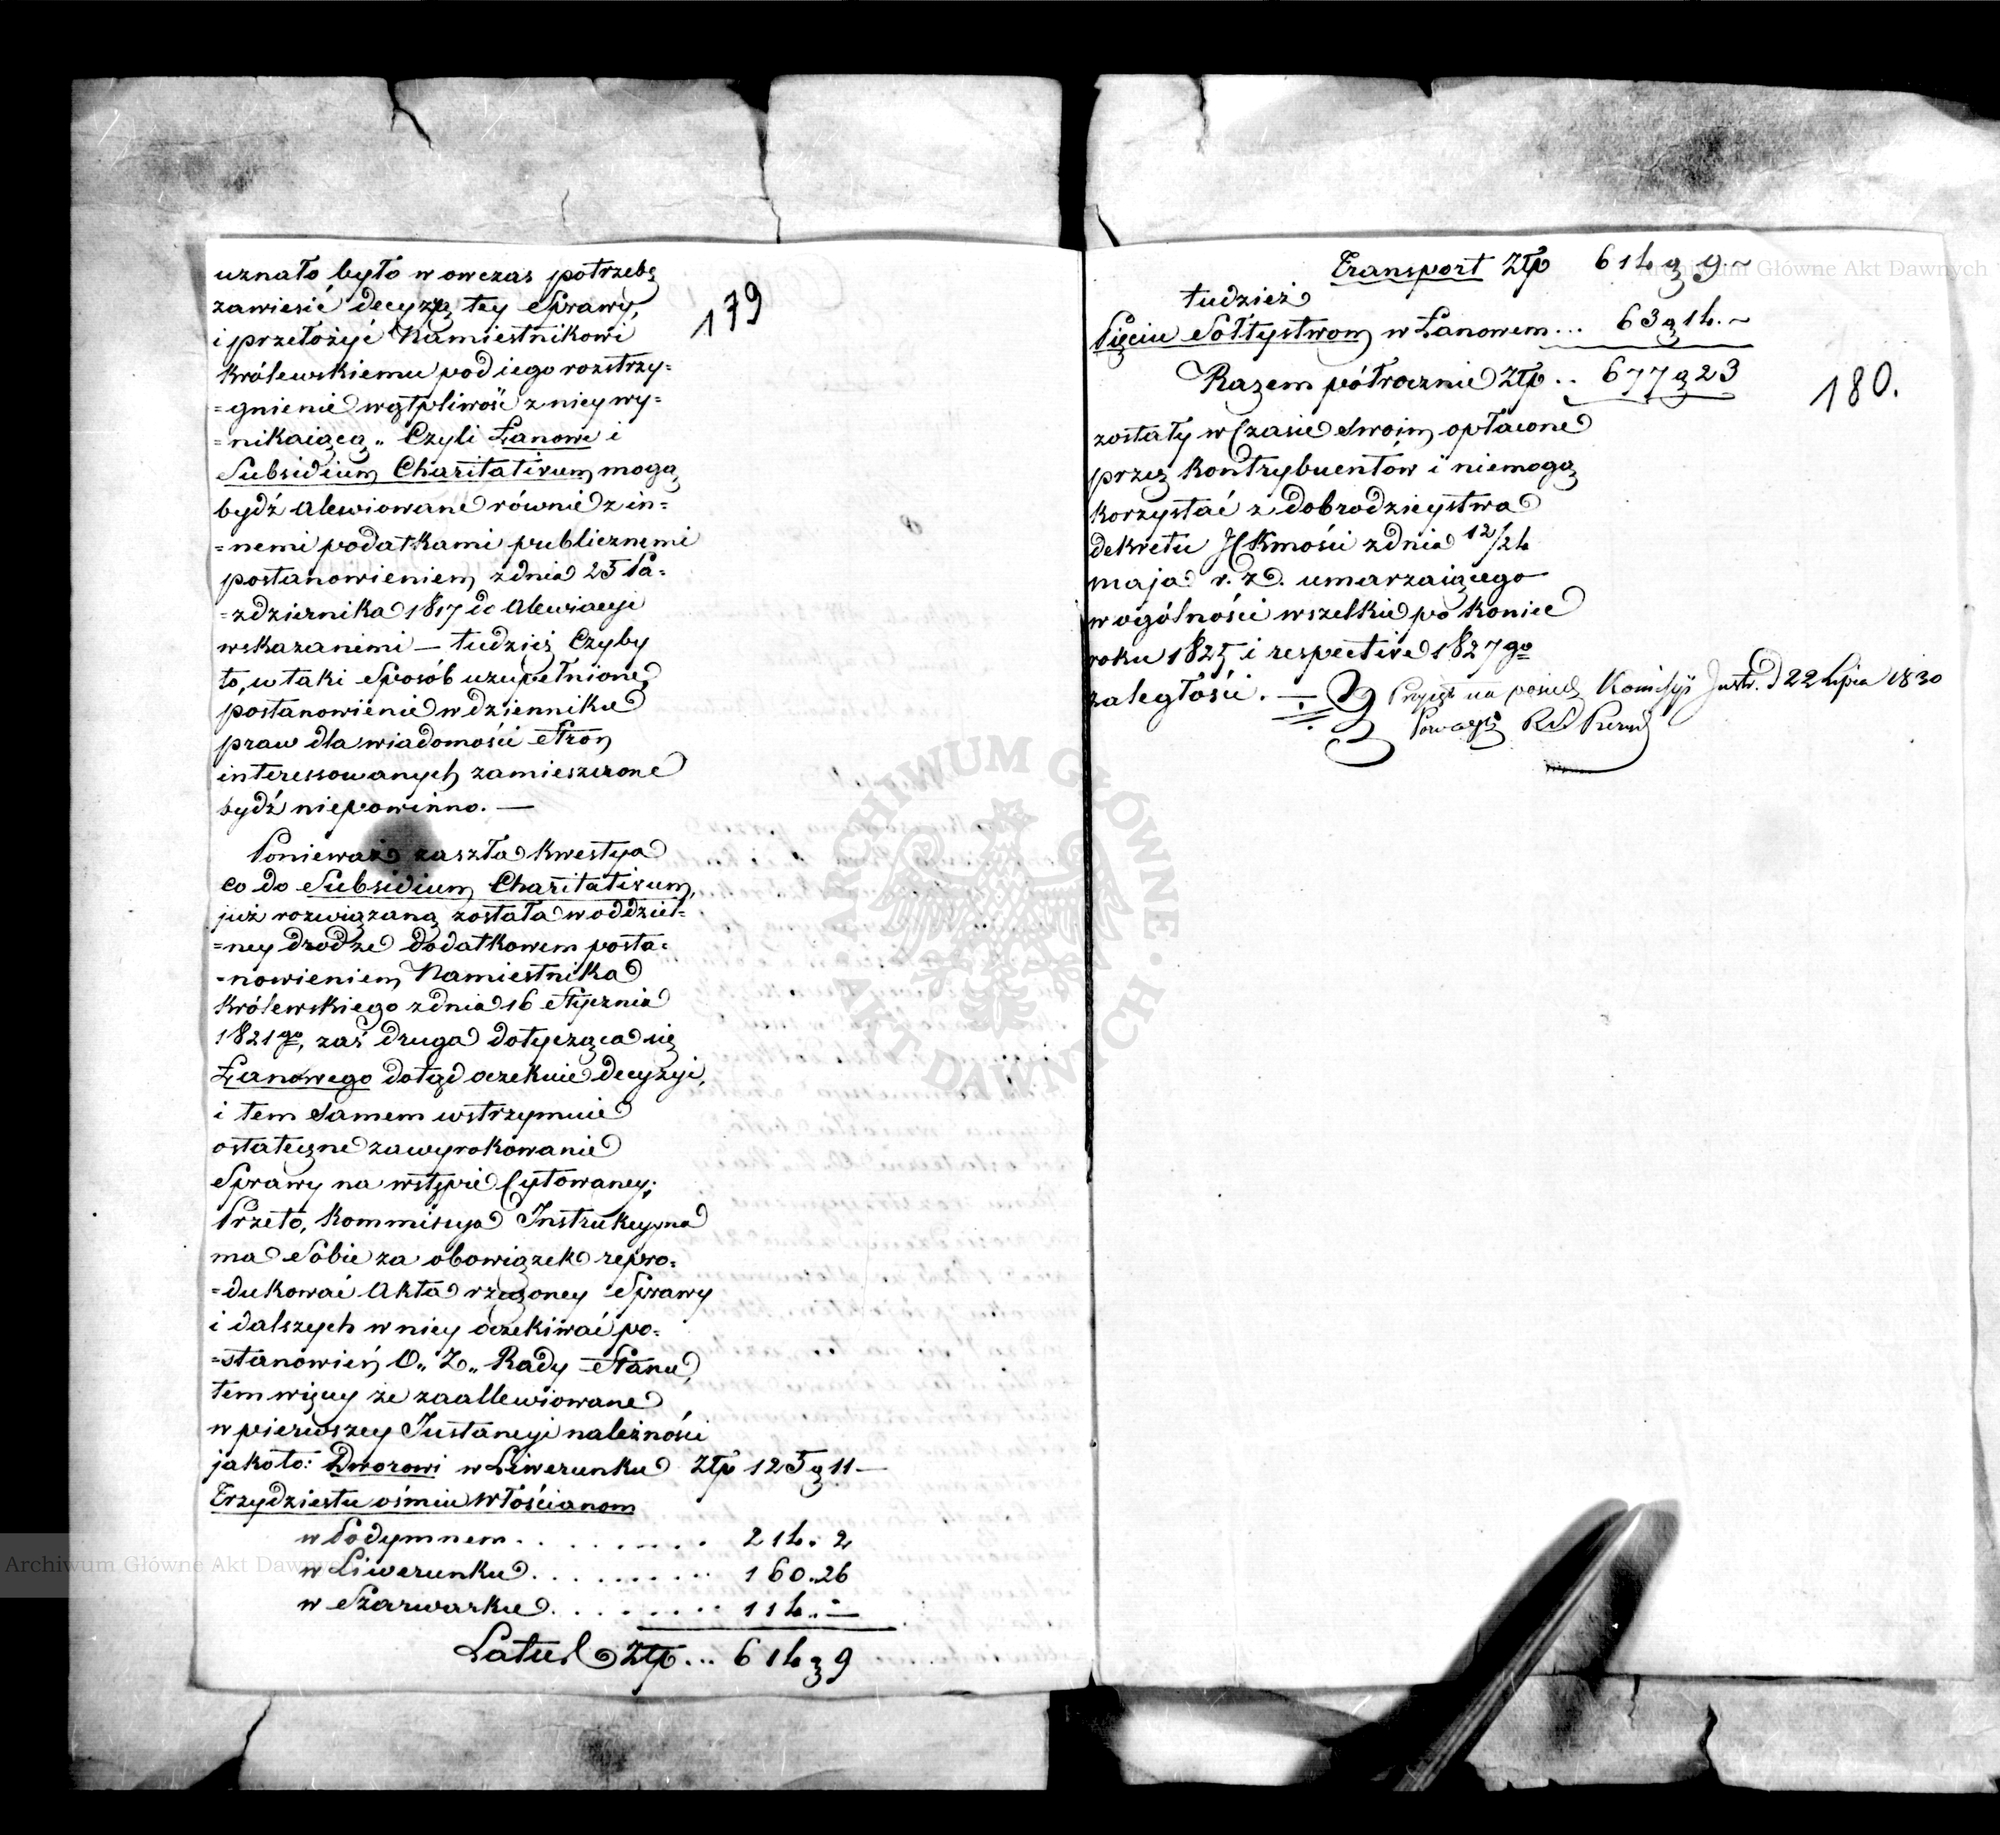 179
uznało było wowczas potrzebę
zawiesić decyzyę tey Sprawy,
i przełożyć Namiestnikowi
Królewskiemu pod iego rozstrzy=
=gnienie wątpliwość z niey wy=
=nikaiącą „ Czyli Łanowe i
Subsidium Charitativum mogą
bydź Alewiowane równie z in=
=nemi podatkami publicznemi
postanowieniem z dnia 25 Pa=
=zdziernika 1817 do Alewiacyi
wskazanemi — tudzież Czyby
to, w taki Sposób uzupełnione
postanowienie w dzienniku
praw dla wiadomości Stron
interessowanych zamieszczone
bydź niepowinno. —
Ponieważ zaszła Kwestya
co do Subsidium Charitativum,
już rozwiązaną została w oddziel=
=ney drodze dodatkowem posta=
=nowieniem Namiestnika
Królewskiego z dnia 16 Stycznia
1821go, zaś druga dotycząca się
Łanowego dotąd oczekuie decyzyi,
i tem Samem wstrzymuie
ostateczne zawyrokowanie
Sprawy na wstępie Cytowaney;
Przeto, Kommissya Instrukcyyna
ma Sobie za obowiązek repro=
=dukować Akta rzeczoney Sprawy
i dalszych w niey oczekiwać po=
=stanowień O„ Z„ Rady Stanu,
tem więcey że zaallewiowane
w pierwszey Instancyi należności
jakoto: Dworowi w Liwerunku Złp 125 g 11 —
Trzydziestu ośmiu Włościanom
w Podymnem . . . . . . . . 214. 2
w Liwerunku . . . . . . . . 160. 26
w Szarwarku . . . . . . . . 114. —
Latus Złp ... 614 g 9
Transport Złp 614 g 9 ~
tudzież
Pięciu Sołtystwom w Łanowem ... 63 g 14. ~
Razem półrocznie Złp .. 677 g 23
180.
zostały w Czasie Swoim opłacone
przez Kontrybuentów i niemogą
korzystać z dobrodzieystwa
dekretu JCKmości z dnia 12/24
maja r. z. umarzaiącego
w ogólności wszelkie po koniec
roku 1825 i respective 1827go
zaległości. —
Przyięte na posied. Komissyi Instr. d 22 Lipca 1830